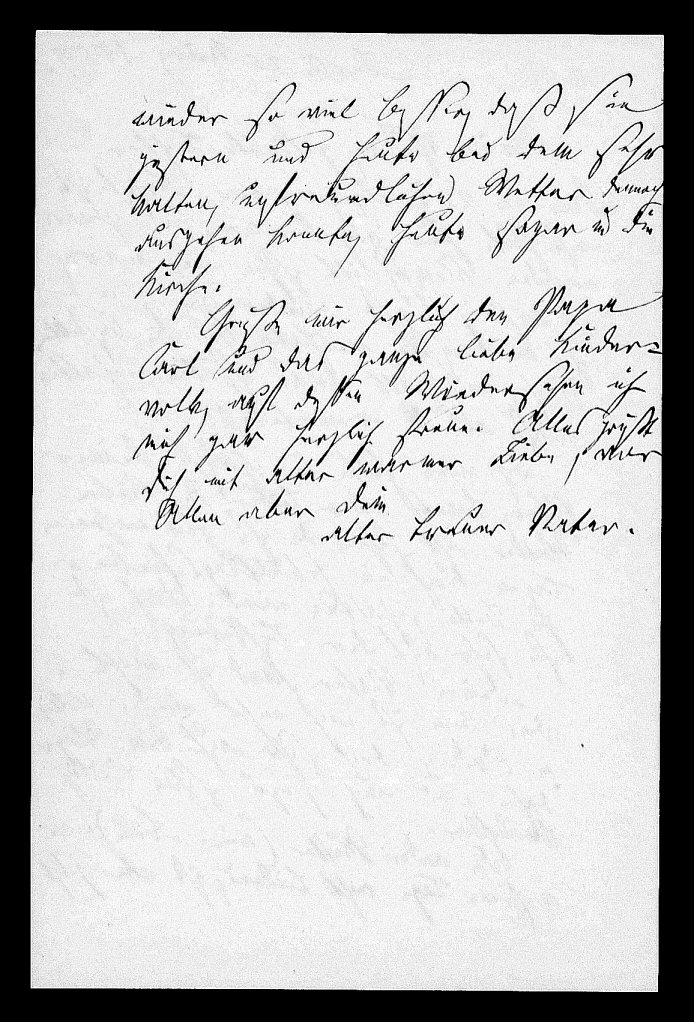 wieder so viel besser, daß sie
gestern und heute bei dem sehr
kalten, unfreundlichen Wetter dennoch
ausgehen konnte, heute sogar in die
Kirche.
Grüße mir herzlich den Papa
Carl und das ganze liebe Kinder=
volk, auf dessen Wiedersehen ich
mich gar herzlich freue. Alles grüßt
Dich mit alter warmer Liebe, vor
Allen aber Dein
alter treuer Vater.